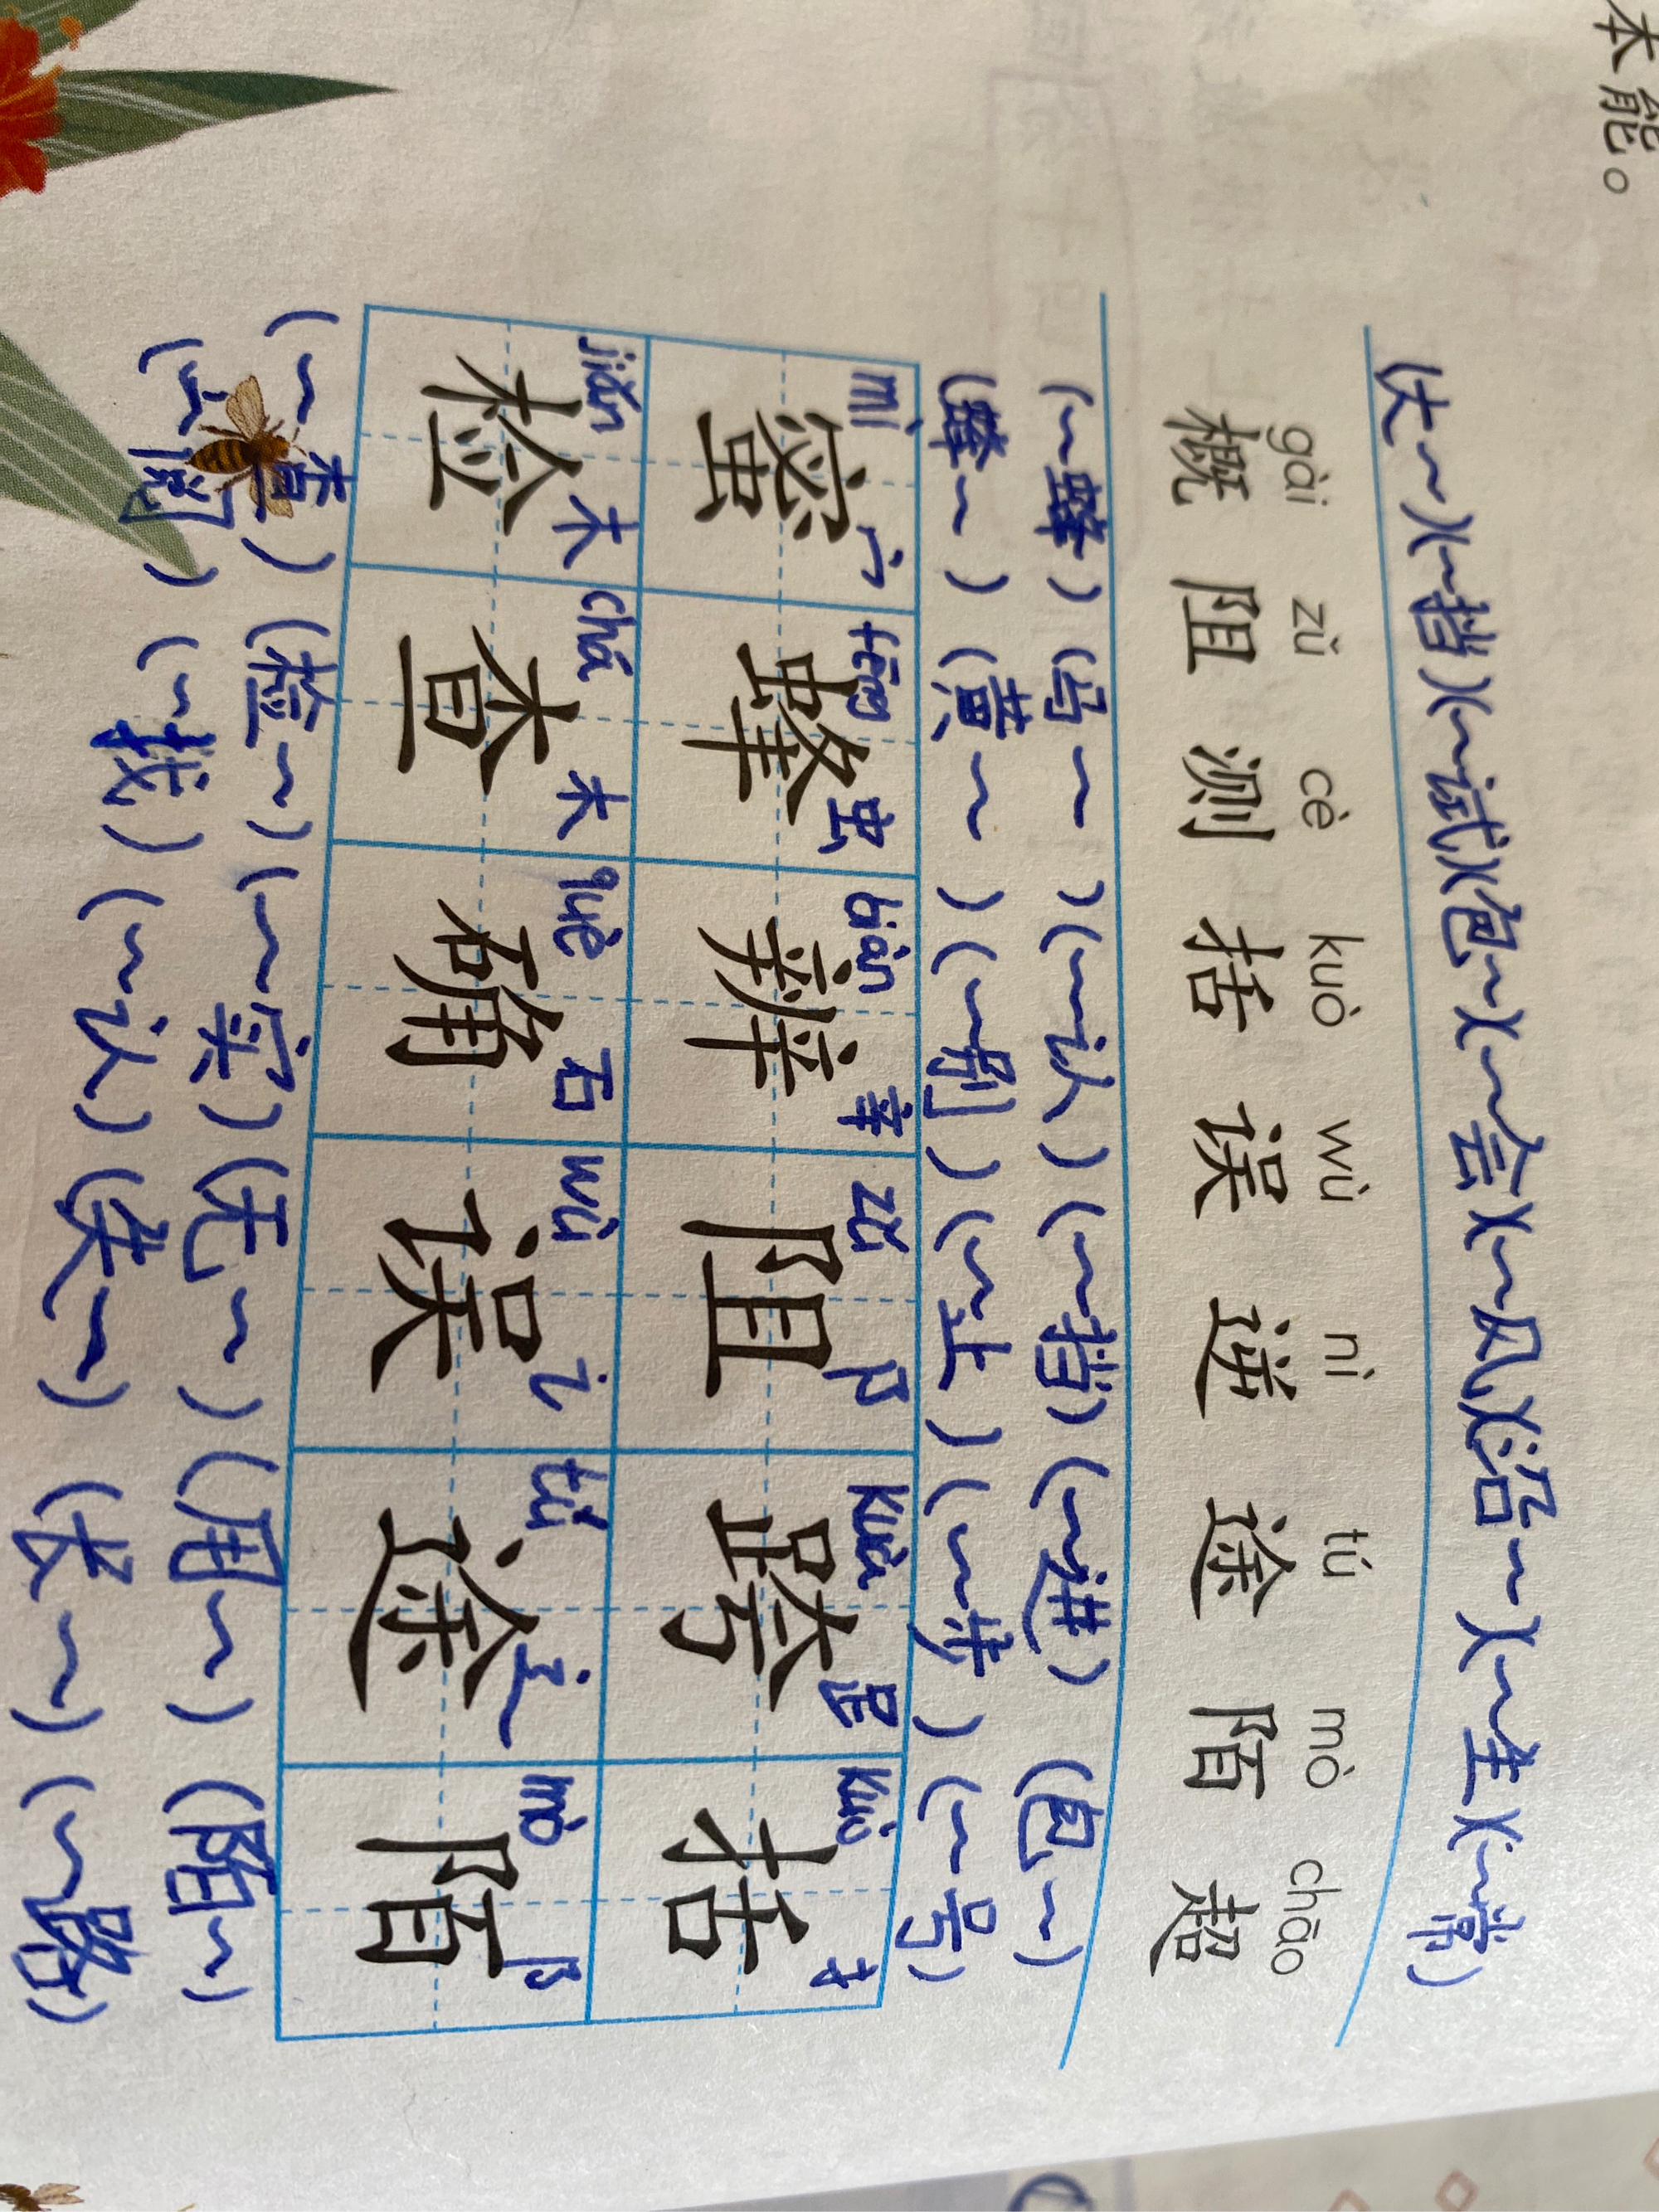 本能。
(大~)(~挡)(~试)(包~)(~会)(~风)(沿~)(~生)(~常)
gài zǔ cè kuò wù nì tú mò chāo
概 阻 测 括 误 逆 途 陌 超
(~蜂)(~认)(~挡)(~进)(包~)
(蜂~)(黄~)(~别)(~止)(~号)
mì fēng biàn zǔ kuà kuò
蜜 宀 蜂 虫 辨 辛 阻 阝 跨 括 扌
jiǎn chá què wù tú mò
检 木 查 木 确 石 误 讠 途 辶 陌 阝
(~查)(检~)(~实)(无~)(用~)(陌~)
(~阅)(~找)(~认)(失~)(长~)(~路)